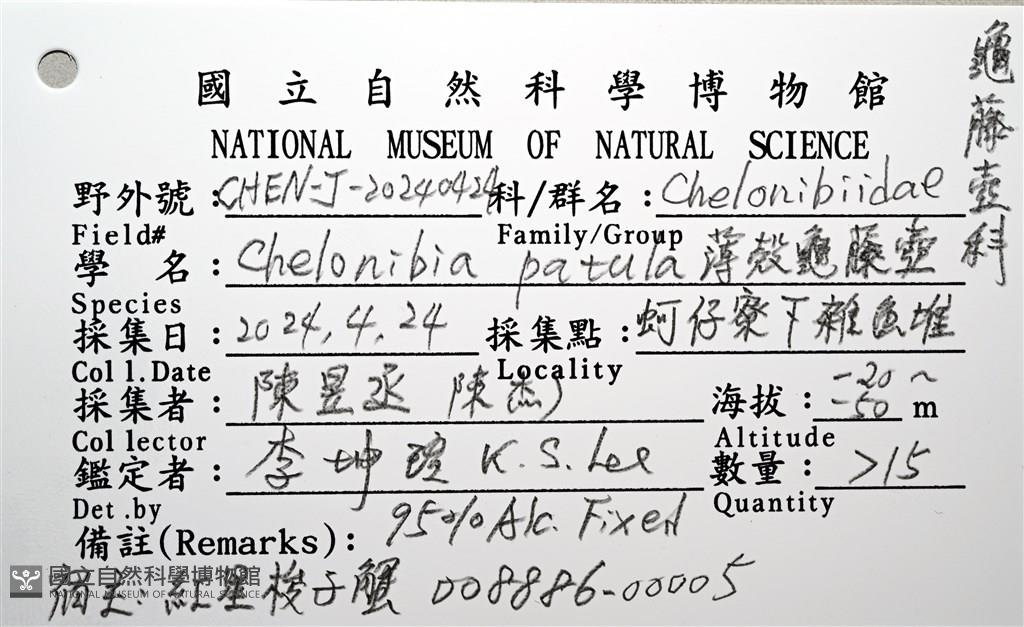 國立自然科學博物館
NATIONAL MUSEUM OF NATURAL SCIENCE
龜藤壺科
野外號:CHEN-J-20240424 科/群名:Chelonibiidae
Field# Family/Group
學 名:Chelonibia patula 薄殼龜藤壺
Species
採集日:2024,4,24 採集點:蚵仔寮下雜魚堆
Coll.Date Locality
採集者:陳昱丞 陳杰 海拔:-20~-50 m
Collector Altitude
鑑定者:李坤瑄 K.S.Lee 數量:>15
Det.by Quantity
備註(Remarks): 95% Alc. Fixed
宿主:紅星梭子蟹 008886-00005
國立自然科學博物館
NATIONAL MUSEUM OF NATURAL SCIENCE